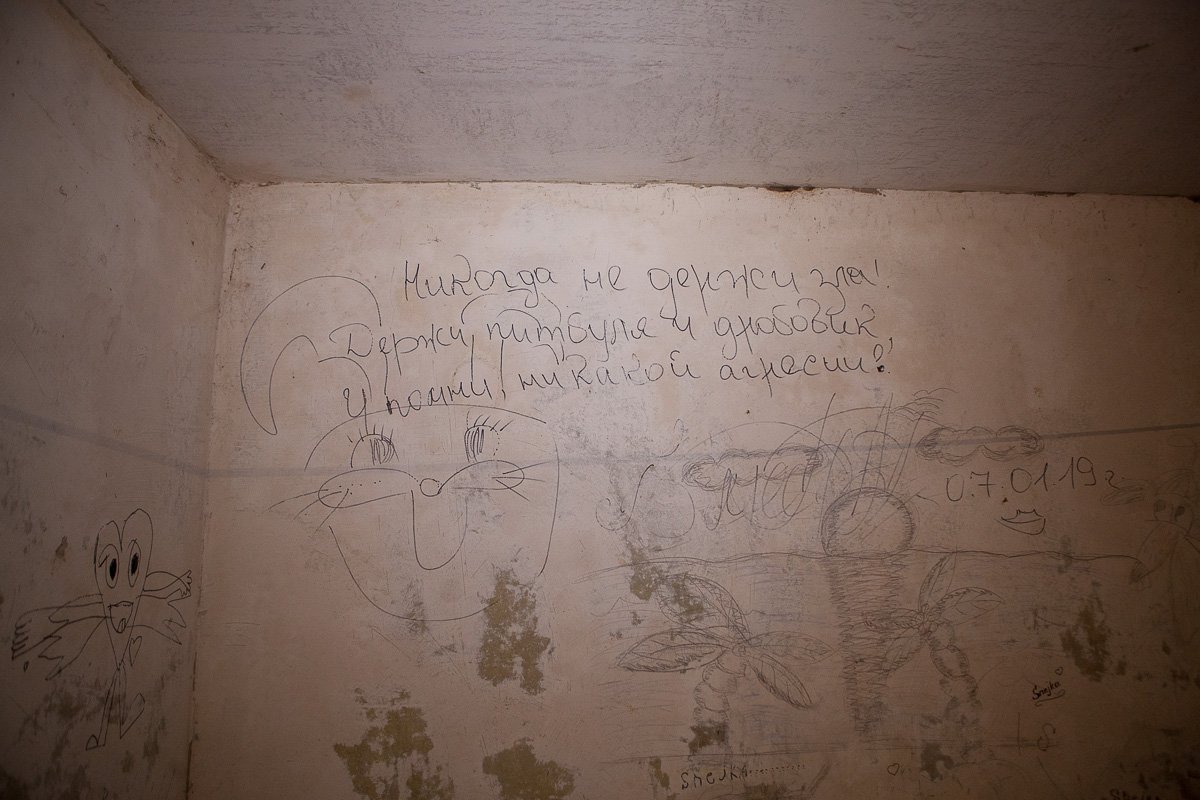 Никогда не держи зла!
Держи питбуля и дробовик
И помни, никакой агресии!
07.01.19г.
Snejka
Snejka
S
Snejka